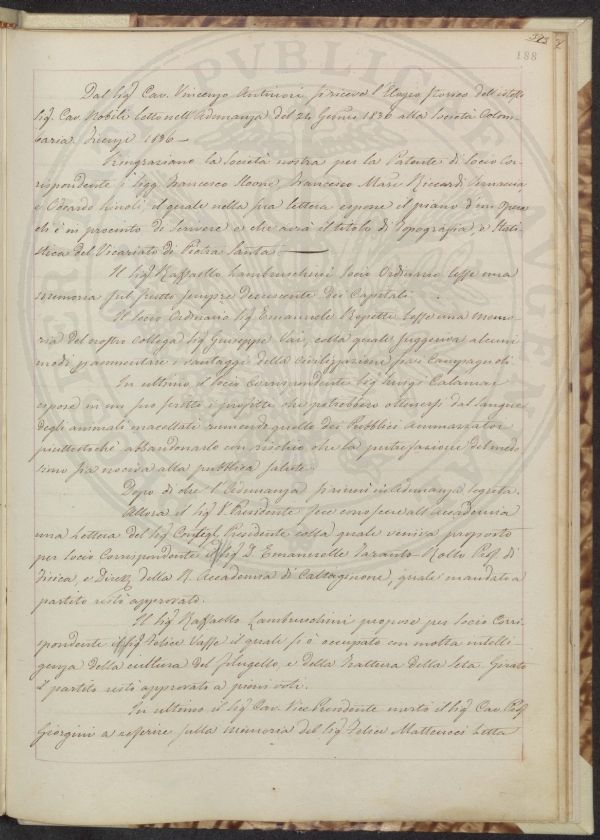 373
188
Dal Sig.r Cav. Vincenzo Antinori si riceve l'Elogio Storico dell'estinto
Sig.r Cav. Nobili letto nell'Adunanza del 24 Genn.o 1836 alla Società Colom-
baria. Firenze 1836 —
Ringraziano la Società nostra per la Patente di Socio Cor-
rispondente i Sigg. Francesco Francesco Mare Riccardi Vernaccia
e Odoardo il quale nella sua lettera espone il piano d'un Opera
ch'è in procinto di scrivere e che avrà il titolo di Topografia, e Stati-
stica del Vicariato di Pietra Santa. —
Il Sig.r Raffaello Lambruschini Socio Ordinario lesse una
memoria sul frutto sempre decrescente dei Capitali.
Il Socio Ordinario Sig.r Emanuele Repetti lesse una memo-
ria del nostro collega Sig.r Giuseppe Vai, colla quale suggeriva alcuni
modi p aumentare i vantaggi della civilizzazione fra i Campagnoli
In ultimo il Socio Corrispondente Sig.r Luigi Calamai
espose in un suo scritto i profitti che potrebbero ottenersi dal sangue
degli animali macellati riunendo quello dei Pubblici Ammazzatoi
piuttostochè abbandonarlo con rischio che la putrefazione del mede-
simo sia nociva alla pubblica salute.
Dopo di che l'Adunanza si riunì in Adunanza segreta.
Allora il Sig.r V. Presidente fece conoscere all'Accademia
una Lettera del Sig.r Consigl. Presidente colla quale veniva proposto
per Socio Corrispondente il Sig.r D. Emanuelle Taranto Rosso Prof. di
Fisica, e Direz. della R. Accademia di Caltagirone, quale mandato a
partito restò approvato.
Il Sig.r Raffaello Lambruschini propose per Socio Corri-
spondente il Sig.r Felice Vasse il quale si è occupato con molta intelli-
genza della cultura del filugello, e della trattura della Seta. Girato
il partito restò approvato a pieni voti.
In ultimo il Sig.r Cav. Vice Presidente invitò il Sig.r Cav. Prof.
Giorgini a referire sulla memoria del Sig.r Felice Matteucci letta